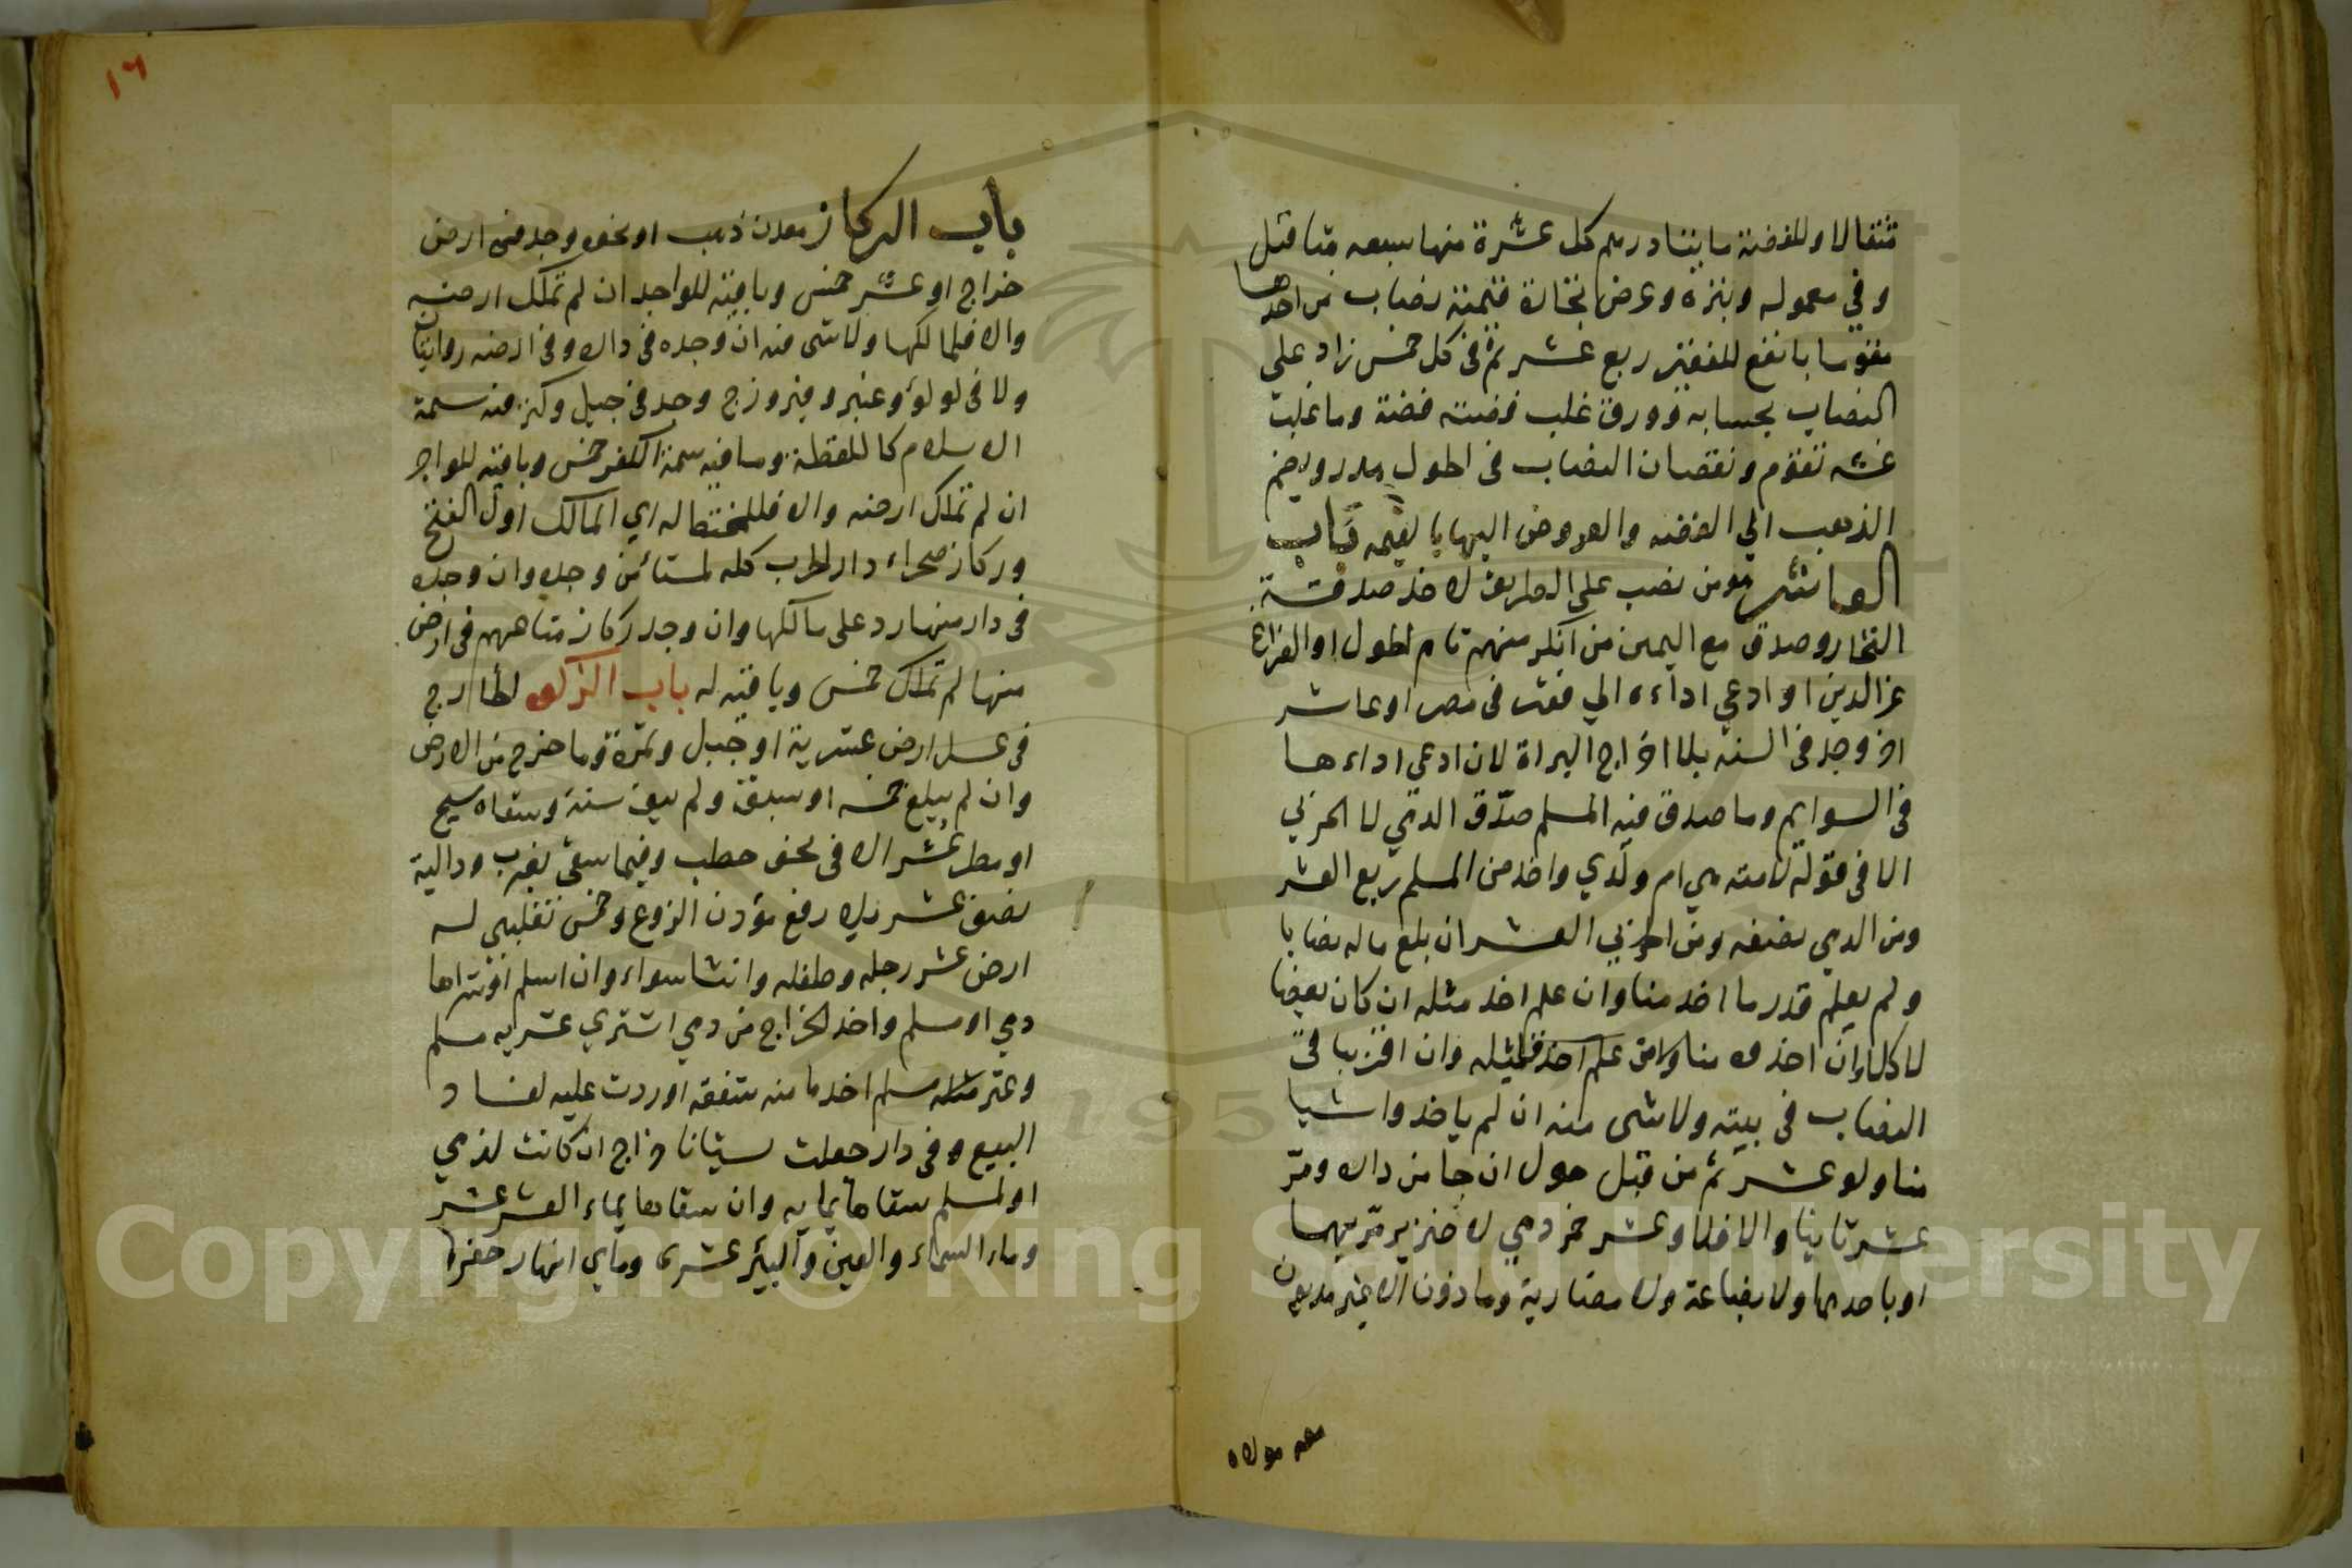 مثقالا وللفضة مايتا درهم كل عشرة منها سبعه مثاقيل
وفي معموله وتبره وعرض تجارة قيمته نصاب من احدهما
مقوما بانفع للفقير ربع عشر ثم في كل خمس زاد على
النصاب بحسابه وورق غلب فضته فضة وما غلب
غشه تقوم ونقصان النصاب في الحول هدر ويضم
الذهب الي الفضه والعروض اليها بالقيمه باب
العاشر هو من نصب على الطريق لاخذ صدقة
التجار وصدق مع اليمين من انكر منهم تام الحول او الفراغ
عن الدين او ادعي اداءه الي فقير في مصر او عاشر
اخر وجد في السنه بلا اخراج البراة لا ان ادعي اداءها
في السوايم وما صدق فيه المسلم صدّق الذمي لا الحربي
الا في قوله لامته هي ام ولدي واخذ من المسلم ربع العشر
ومن الذمي نصفه ومن الحربي العشر ان بلغ ماله نصابا
ولم يعلم قدر ما اخذ منا وان علم اخذ مثله ان كان بعضا
لا كلا وان اخذوه منا علم اخذ مثله وان اقر بباقي
النصاب في بيته ولا شي منه ان لم ياخذوا شيا
منا ولو عشر ثم من قبل حول ان جا من داره ومرّ
عشر ثانيا والا فلا وعشر خمر ذمي لا خنزير مرّ بهما
او باحدهما ولا بضاعة ولا مضاربة وماذون الا غير مديون
معه مولاه
١٦
باب الركاز معدن ذهب او نحوه وجد في ارض
خراج او عشر خمس وباقيه للواجد ان لم تملك ارضه
والا فلمالكها ولا شي فيه ان وجده في داره وفي ارضه روايتان
ولا في لولؤ وعنبر وفيروزج وجد في جبل وكنز فيه سمة
الاسلام كاللقطة وما فيه سمة الكفر خمس وباقيه للواجد
ان لم تملك ارضه والا فللمختط له اي المالك اول الفتح
وركاز صحراء دار الحرب كله لمستامن وجده وان وجده
في دار منها رد على مالكها وان وجد ركاز متاعهم في ارض
منها لم تملك خمس وباقيه له باب الزكوه الخارج
في عسل ارض عشرية او جبل وثمرة وما خرج من الارض
وان لم يبلغ خمسه اوسق ولم يبق سنة وسقاه سيح
او مطر عشر الا في نحو حطب وفيما سقي بغرب ودالية
نصف عشر بلا رفع مؤن الزرع وخمس تغلبي له
ارض عشر رجله وطفله وانثا سواء وان اسلم او شراها
ذمي او مسلم واخذ الخراج من ذمي اشتري عشريه مسلم
وعشر مسلم اخذها منه بشفعه او ردت عليه لفساد
البيع وفي دار جعلت بستانا خراج ان كانت لذمي
او لمسلم سقاها بمايه وان سقاها بماء العشر عشر
وماء السماء والعين والبير عشري وماي انهار حفرها